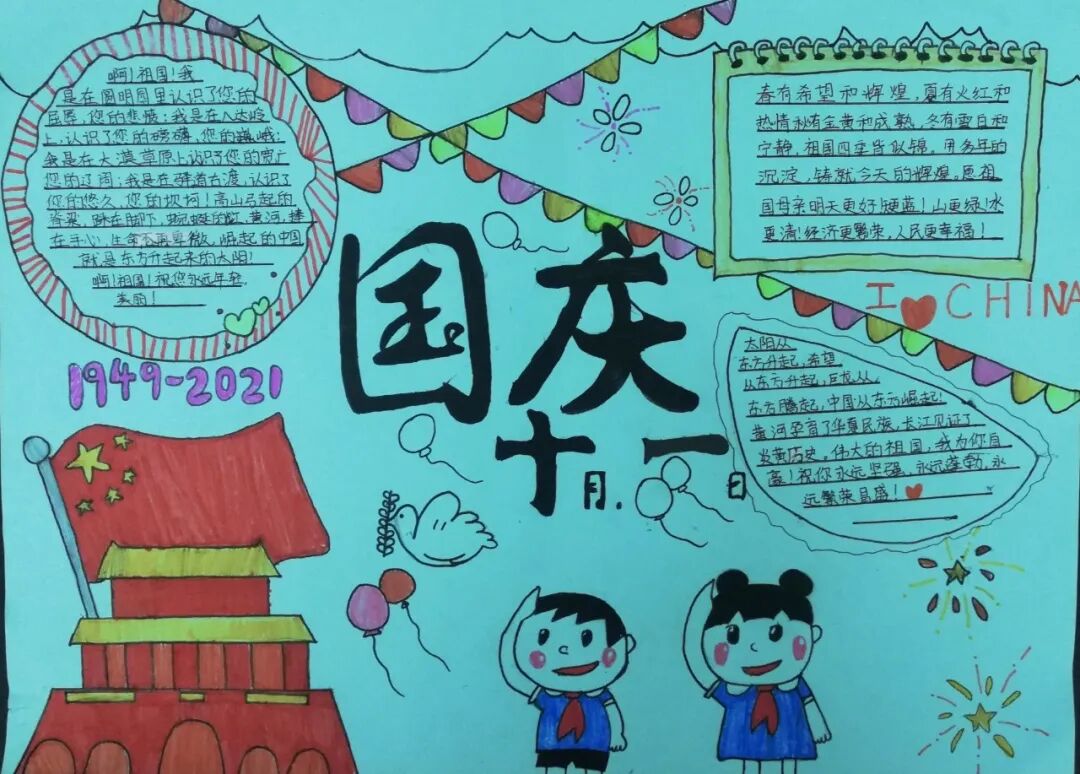 啊！祖国！我
是在圆明园里认识了您的
屈辱，您的悲愤；我是在八达岭
上，认识了您的磅礴，您的巍峨；
我是在大漠草原上认识了您的宽广
您的辽阔；我是在驿道古渡，认识了
你的悠久，您的坎坷！高山弓起的
脊梁，踩在脚下，蜿蜒的黄河，捧
在手心，生命不再卑微，崛起的中国
就是东方升起来的太阳！
啊！祖国！祝您永远年轻，
美丽！
1949-2021
国庆
十月.一日
春有希望和辉煌，夏有火红和
热情，秋有金黄和成熟，冬有雪白和
宁静，祖国四季皆似锦。用多年的
沉淀，铸就今天的辉煌，愿祖
国母亲明天更好！更蓝！山更绿！水
更清！经济更繁荣，人民更幸福！
I CHINA
太阳从
东方升起，希望
从东方升起，巨龙从
东方腾起，中国从东方崛起！
黄河孕育了华夏民族，长江见证了
炎黄历史。伟大的祖国，我为你自
豪！祝你永远坚强，永远蓬勃，永
远繁荣昌盛！